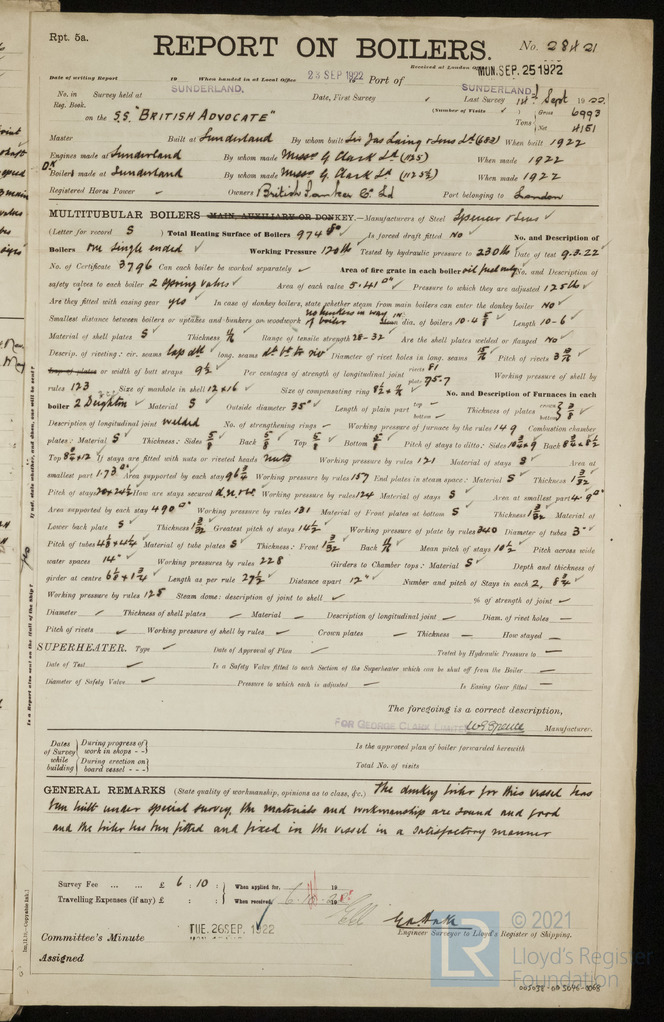 Rpt. 5a.
REPORT ON BOILERS.
No. 28421
Received at London Office MON. SEP. 25 1922
Date of writing Report 19 When handed in at Local Office 23 SEP 1922 Port of SUNDERLAND,
No. in Reg. Book. Survey held at SUNDERLAND, Date, First Survey ✓ Last Survey 14th Sept 1922
(Number of Visits ✓)
on the S.S. "BRITISH ADVOCATE" Tons { Gross 6993 Net 4151
Master Built at Sunderland By whom built Sir Jas Laing & Sons Ld (683) When built 1922
Engines made at Sunderland By whom made Messrs G. Clark Ld (1125) When made 1922
DK Boilers made at Sunderland By whom made Messrs G. Clark Ld (1125½) When made 1922
Registered Horse Power Owners British Tanker Co. Ld Port belonging to London
MULTITUBULAR BOILERS MAIN, AUXILIARY OR DONKEY.—Manufacturers of Steel Spencer & Sons
(Letter for record S) Total Heating Surface of Boilers 974 Is forced draft fitted No No. and Description of
Boilers One single ended Working Pressure 120 lb Tested by hydraulic pressure to 230 lb Date of test 9.3.22
No. of Certificate 3796 Can each boiler be worked separately ✓ Area of fire grate in each boiler oil fuel only No. and Description of
safety valves to each boiler 2 Spring valves Area of each valve 5.41 Pressure to which they are adjusted 125 lb
Are they fitted with easing gear yes In case of donkey boilers, state whether steam from main boilers can enter the donkey boiler No
Smallest distance between boilers or uptakes and bunkers or woodwork no bunkers in way of boiler dia. of boilers 10-4⅝ Length 10-6
Material of shell plates S Thickness 11/16 Range of tensile strength 28-32 Are the shell plates welded or flanged No
Descrip. of riveting: cir. seams lap dbl long. seams Diameter of rivet holes in long. seams 15/16 Pitch of rivets
Lap of plates or width of butt straps 9½ Per centages of strength of longitudinal joint rivets 81 plate 75.7 Working pressure of shell by
rules 123 Size of manhole in shell 12 x 16 Size of compensating ring No. and Description of Furnaces in each
boiler 2 Deighton Material S Outside diameter 35" Length of plain part top bottom Thickness of plates crown bottom
Description of longitudinal joint welded No. of strengthening rings - Working pressure of furnace by the rules 149 Combustion chamber
plates: Material S Thickness: Sides ⅝ Back ⅝ Top ⅝ Bottom ⅝ Pitch of stays to ditto: Sides Back
Top If stays are fitted with nuts or riveted heads nuts Working pressure by rules 121 Material of stays S Area at
smallest part 1.73 Area supported by each stay Working pressure by rules 157 End plates in steam space: Material S Thickness
Pitch of stays How are stays secured Working pressure by rules 124 Material of stays S Area at smallest part 4.9
Area supported by each stay 490 Working pressure by rules 131 Material of Front plates at bottom S Thickness Material of
Lower back plate S Thickness Greatest pitch of stays 14½ Working pressure of plate by rules 340 Diameter of tubes 3"
Pitch of tubes Material of tube plates S Thickness: Front Back 11/16 Mean pitch of stays 10½ Pitch across wide
water spaces 14" Working pressures by rules 228 Girders to Chamber tops: Material S Depth and thickness of
girder at centre Length as per rule 27½ Distance apart 12" Number and pitch of Stays in each 2, 8¾
Working pressure by rules 125 Steam dome: description of joint to shell % of strength of joint
Diameter Thickness of shell plates Material Description of longitudinal joint Diam. of rivet holes
Pitch of rivets Working pressure of shell by rules Crown plates Thickness How stayed
SUPERHEATER. Type Date of Approval of Plan Tested by Hydraulic Pressure to
Date of Test Is a Safety Valve fitted to each Section of the Superheater which can be shut off from the Boiler
Diameter of Safety Valve Pressure to which each is adjusted Is Easing Gear fitted
The foregoing is a correct description,
FOR GEORGE CLARK LIMITED W G Spence Manufacturer.
Dates of Survey while building { During progress of work in shops - - } Is the approved plan of boiler forwarded herewith
{ During erection on board vessel - - - } Total No. of visits
GENERAL REMARKS (State quality of workmanship, opinions as to class, &c.) The donkey boiler for this vessel has
been built under special survey, the materials and workmanship are sound and good
and the boiler has been fitted and fixed in the vessel in a satisfactory manner
Survey Fee ... ... £ 6 : 10 : When applied for, 19
Travelling Expenses (if any) £ : : When received, 19
Engineer Surveyor to Lloyd's Register of Shipping.
Committee's Minute TUE. 26 SEP. 1922
Assigned
© 2021
LR Lloyd's Register
Foundation
005038-005046-0068
Is a Report also sent on the Hull of the Ship?
If not, state whether, and when, one will be sent?